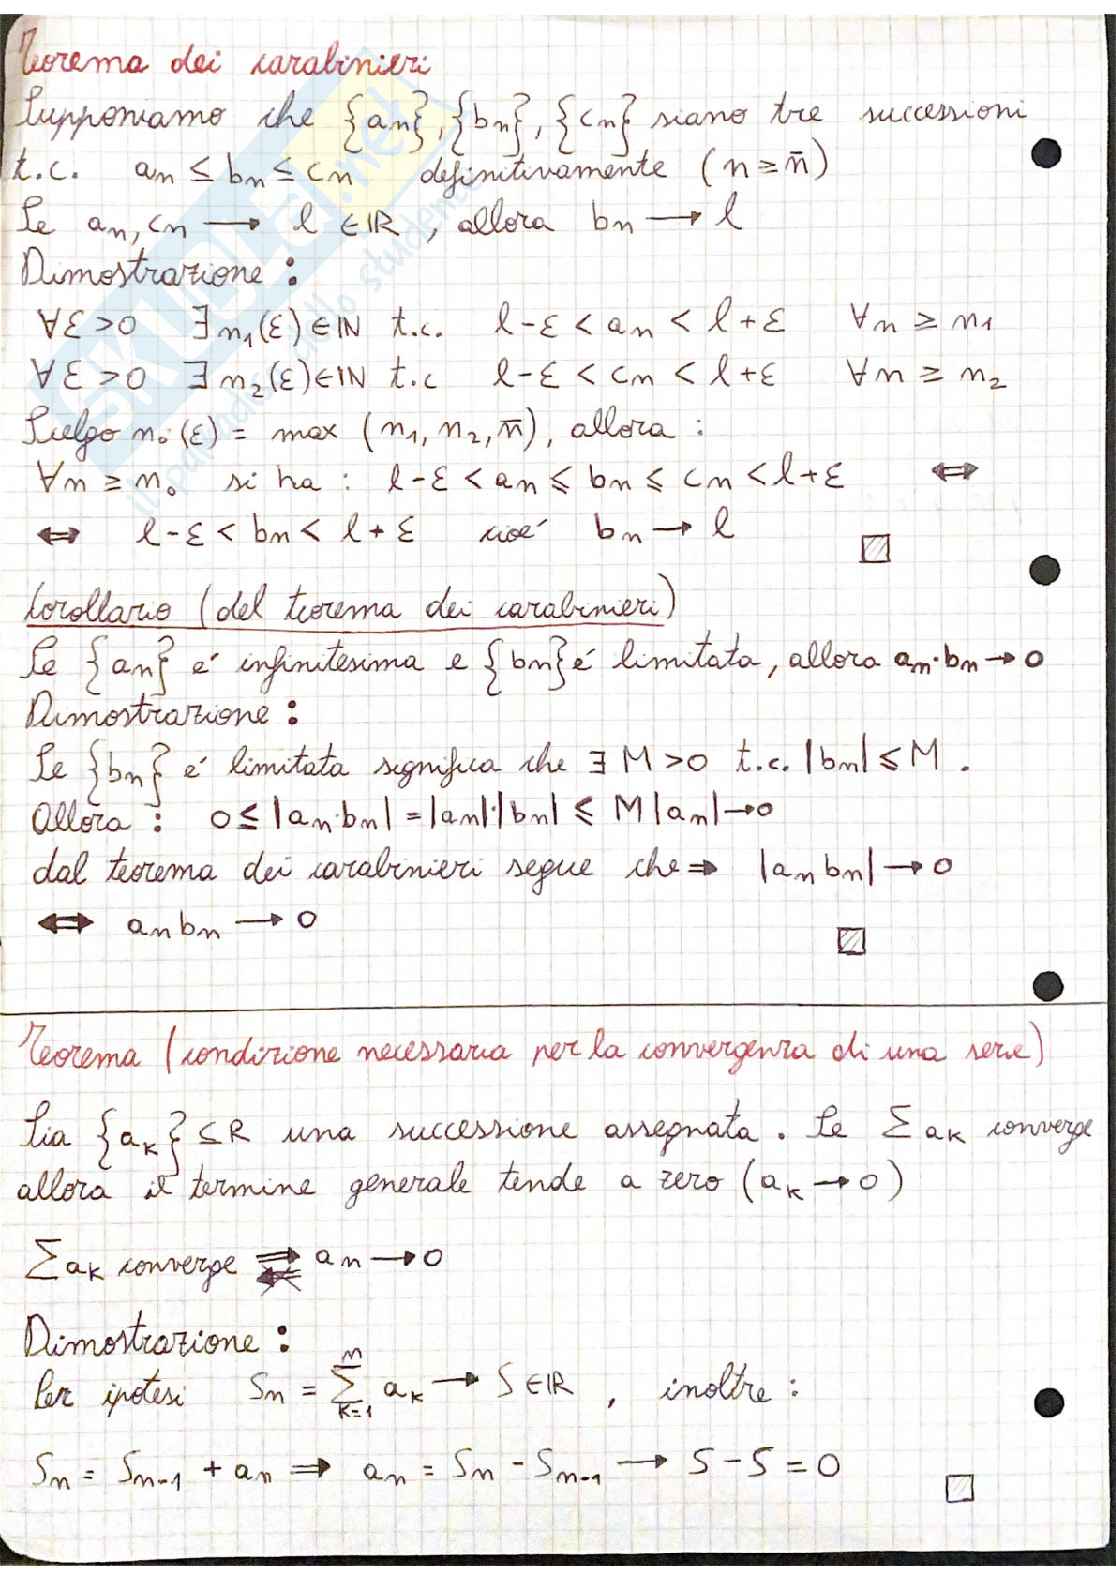 Teorema dei carabinieri
Supponiamo che {an}, {bn}, {cn} siano tre successioni
t.c. an ≤ bn ≤ cn definitivamente (n ≥ n̄)
Se an, cn → l ∈ ℝ, allora bn → l
Dimostrazione :
∀ε > 0 ∃ n₁(ε) ∈ ℕ t.c. l-ε < an < l+ε ∀n ≥ n₁
∀ε > 0 ∃ n₂(ε) ∈ ℕ t.c l-ε < cn < l+ε ∀n ≥ n₂
Scelgo n₀(ε) = max (n₁, n₂, n̄), allora :
∀n ≥ n₀ si ha : l-ε < an ≤ bn ≤ cn < l+ε ⇔
⇔ l-ε < bn < l+ε cioé bn → l
Corollario (del teorema dei carabinieri)
Se {an} e' infinitesima e {bn} é limitata, allora an·bn → 0
Dimostrazione :
Se {bn} e' limitata significa che ∃ M > 0 t.c. |bn| ≤ M .
Allora : 0 ≤ |an·bn| = |an|·|bn| ≤ M |an| → 0
dal teorema dei carabinieri segue che ⇒ |an bn| → 0
⇔ an bn → 0
Teorema (condizione necessaria per la convergenza di una serie)
Sia {aₖ} ⊆ R una successione assegnata . Se Σ aₖ converge
allora il termine generale tende a zero (aₖ → 0)
Σ aₖ converge ⇒ ⇍ an → 0
Dimostrazione :
Per ipotesi Sn = Σ_{k=1}^{n} aₖ → S ∈ ℝ , inoltre :
Sn = Sn-1 + an ⇒ an = Sn - Sn-1 → S - S = 0